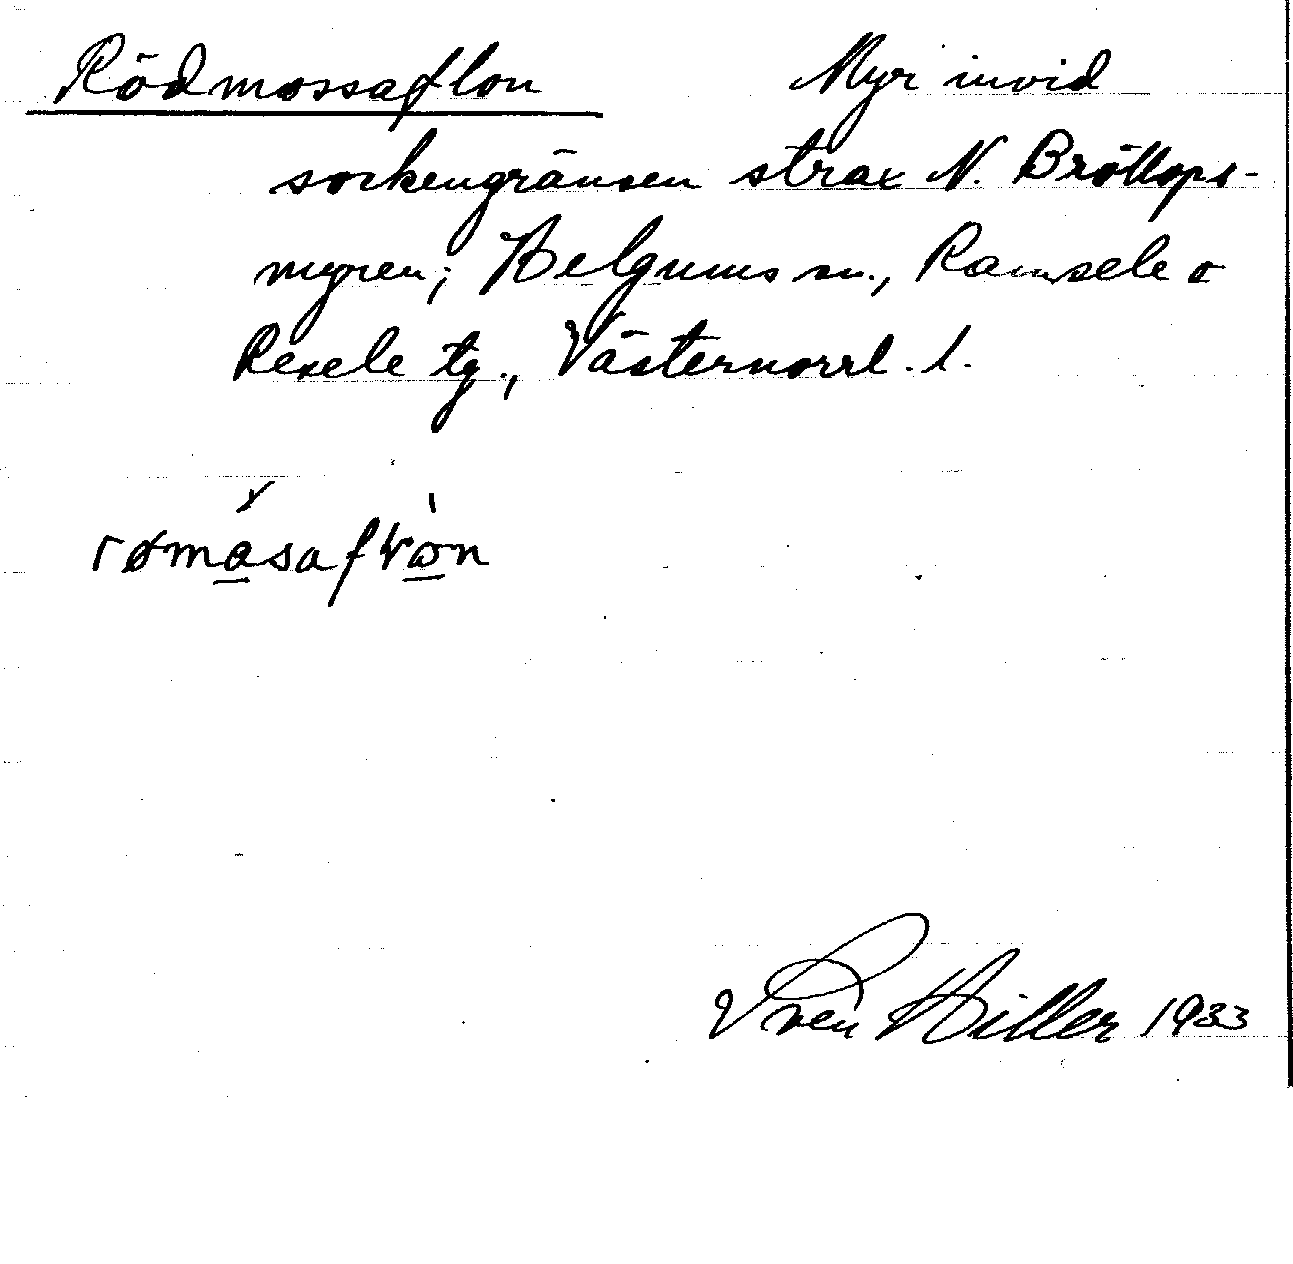 Rödmossaflon Myr invid
sockengränsen strax N. Bröllops-
myren; Helgums sn., Ramsele o
Resele tg., Västernorrl. l.
Sven Hiller 1933